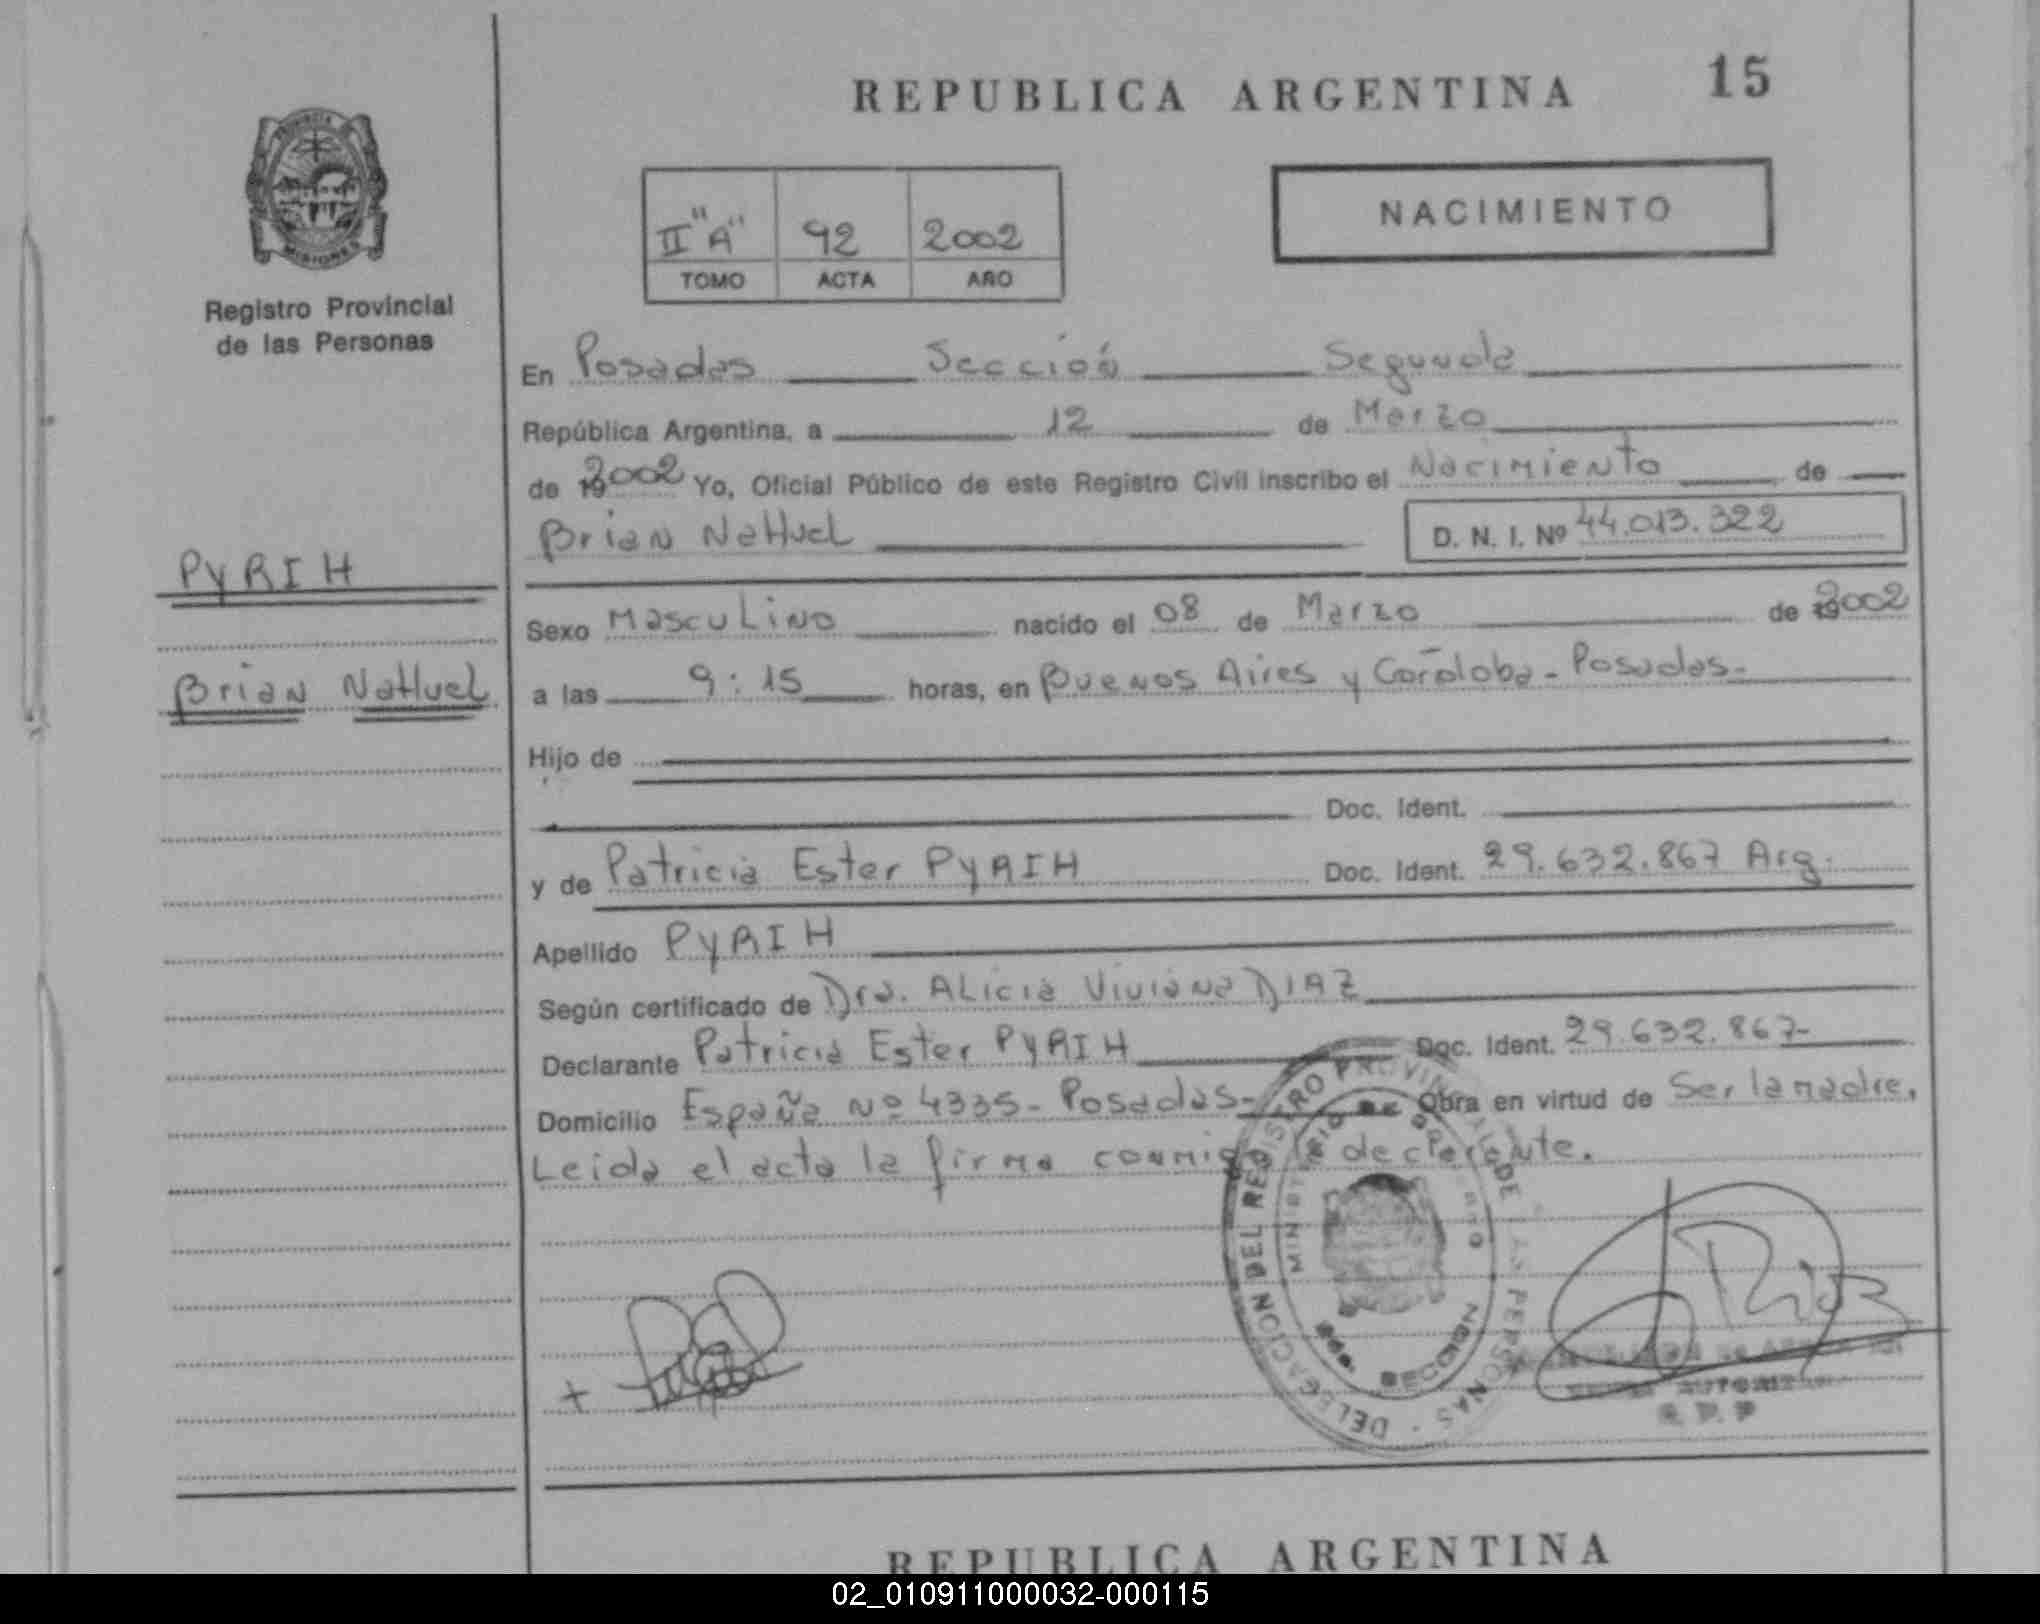 REPUBLICA ARGENTINA 15
PROVINCIA
MISIONES
Registro Provincial
de las Personas
II "A" 92 2002
TOMO ACTA AÑO
NACIMIENTO
En Posadas Sección Segunda
República Argentina, a 12 de Marzo
de 2002 Yo, Oficial Público de este Registro Civil inscribo el Nacimiento de
Brian NaHuel D. N. I. Nº 44.013.322
PYRIH
Sexo MascuLino nacido el 08 de Marzo de 2002
Brian NaHueL
a las 9:15 horas, en Buenos Aires y Córdoba - Posadas-
Hijo de
Doc. Ident.
y de Patricia Ester PYRIH Doc. Ident. 29.632.867 Arg.
Apellido PYRIH
Según certificado de Dra. ALicia Viviana DIAZ
Declarante Patricia Ester PYRIH Doc. Ident. 29.632.867-
Domicilio España Nº 4335- Posadas- Obra en virtud de Ser la madre.
Leida el acta la firma conmigo la declarante.
DELEGACION DEL REGISTRO PROVINCIAL DE LAS PERSONAS
MINISTERIO DE
SECCION
REPUBLICA ARGENTINA
02_010911000032-000115